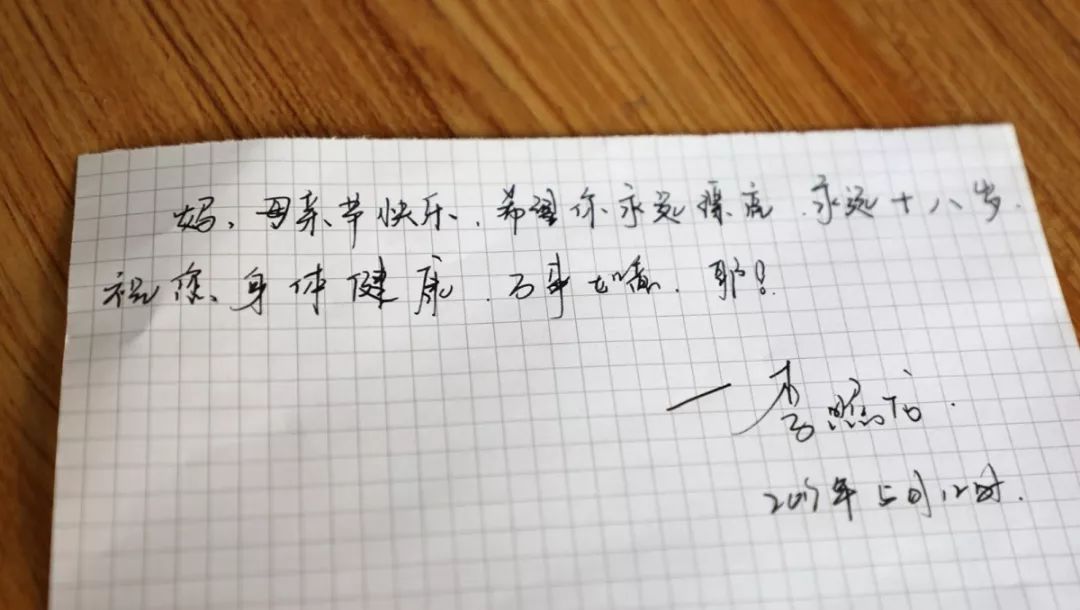 妈，母亲节快乐，希望你永远漂亮，永远十八岁.
祝您身体健康，万事如意，耶！
— 李照
年5月12时.